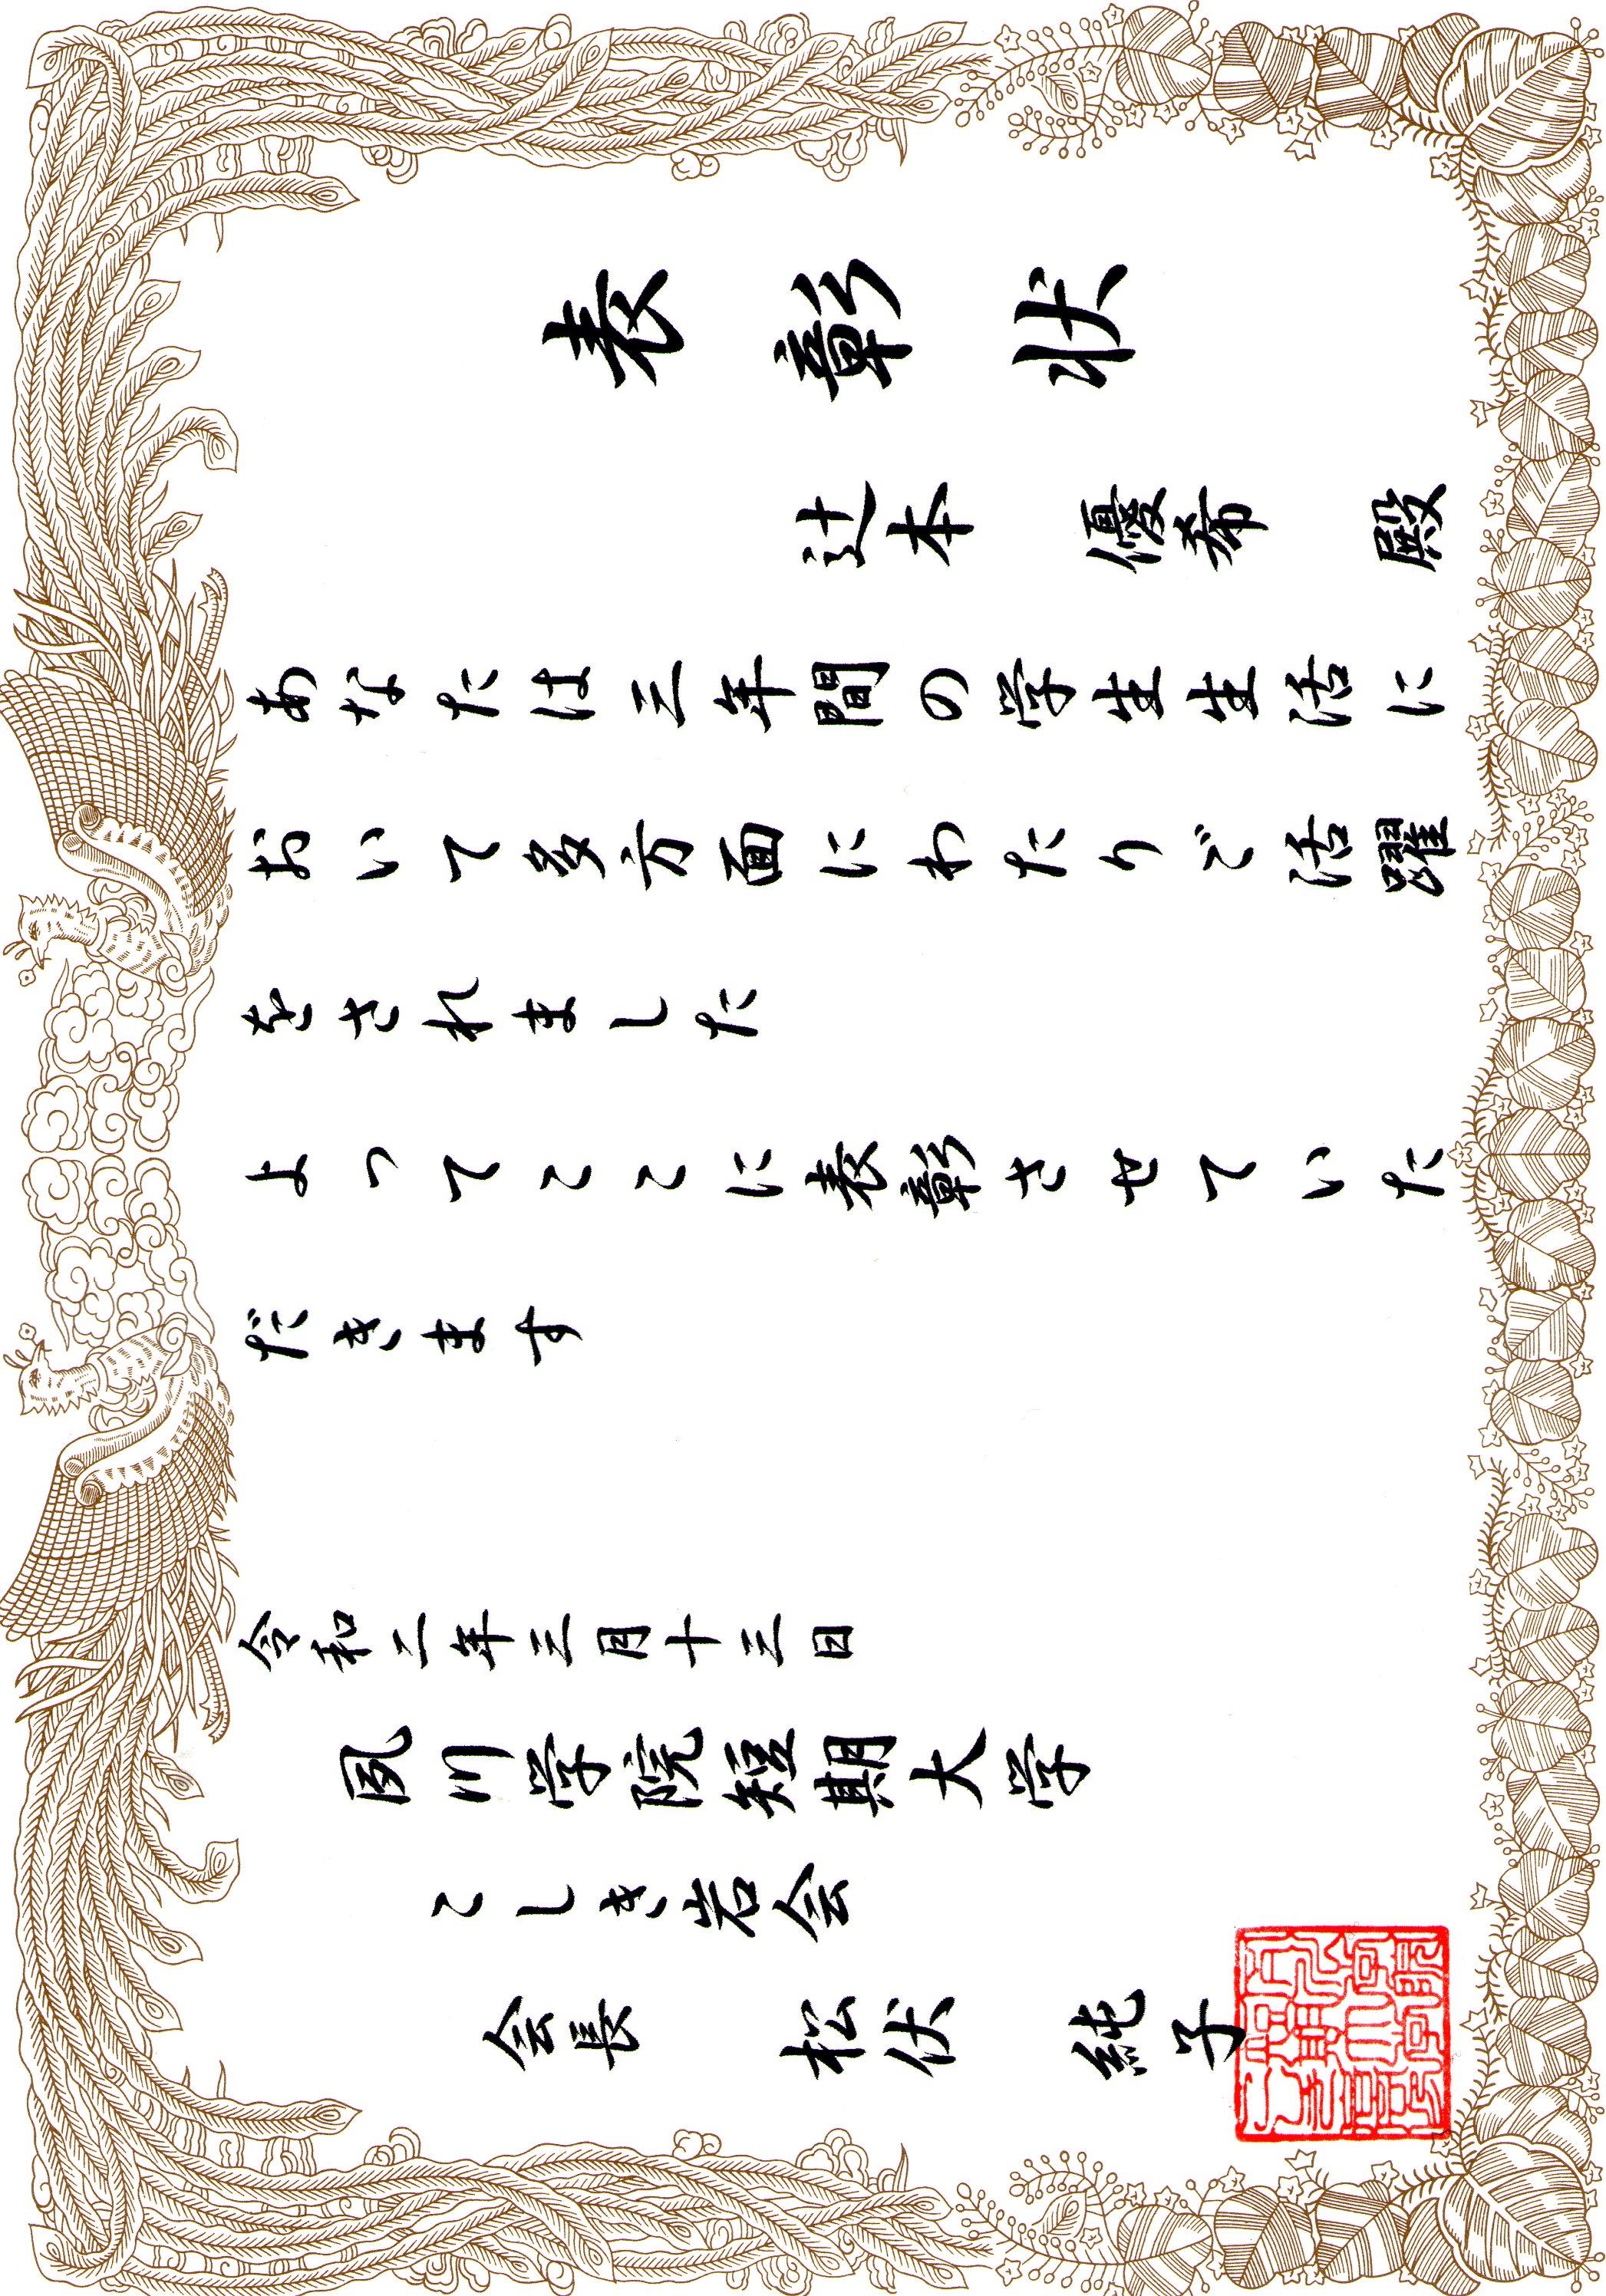 表彰状
辻本 優希 殿
あなたは三年間の学生生活に
おいて多方面にわたりご活躍
をされました
よってここに表彰させていた
だきます
令和二年三月十三日
夙川学院短期大学
こしき岩会
会長 松伏 純子